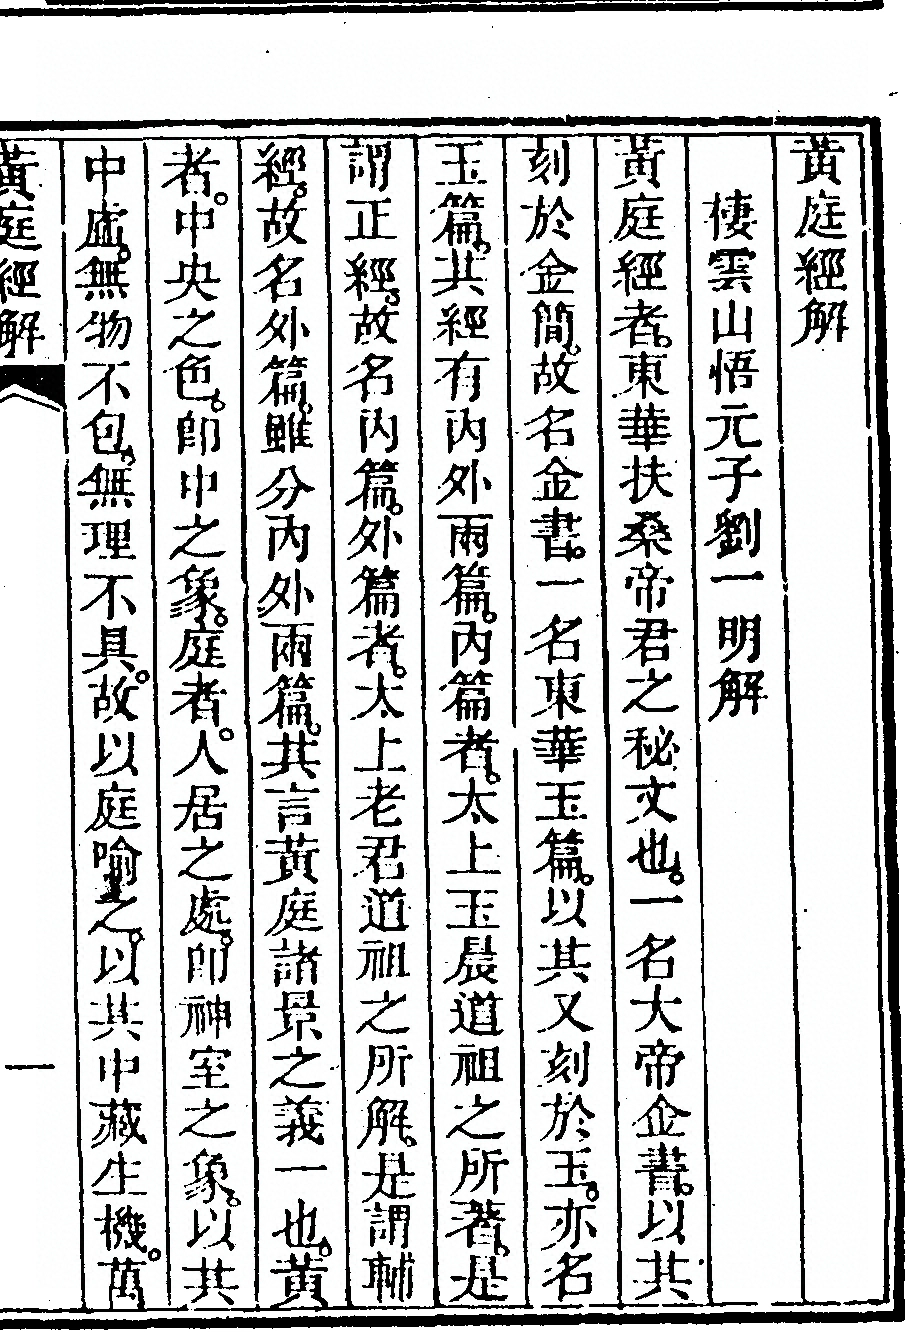 黃庭經解
棲雲山悟元子劉一明解
黃庭經者。東華扶桑帝君之秘文也。一名大帝金書。以其
刻於金簡。故名金書。一名東華玉篇。以其又刻於玉。亦名
玉篇。其經有內外兩篇。內篇者。太上玉晨道祖之所著。是
謂正經。故名內篇。外篇者。太上老君道祖之所解。是謂輔
經。故名外篇。雖分內外兩篇。其言黃庭諸景之義一也。黃
者。中央之色。卽中之象。庭者。人居之處。卽神室之象。以其
中虛。無物不包。無理不具。故以庭喻之。以其中藏生機。萬
黃庭經解
一